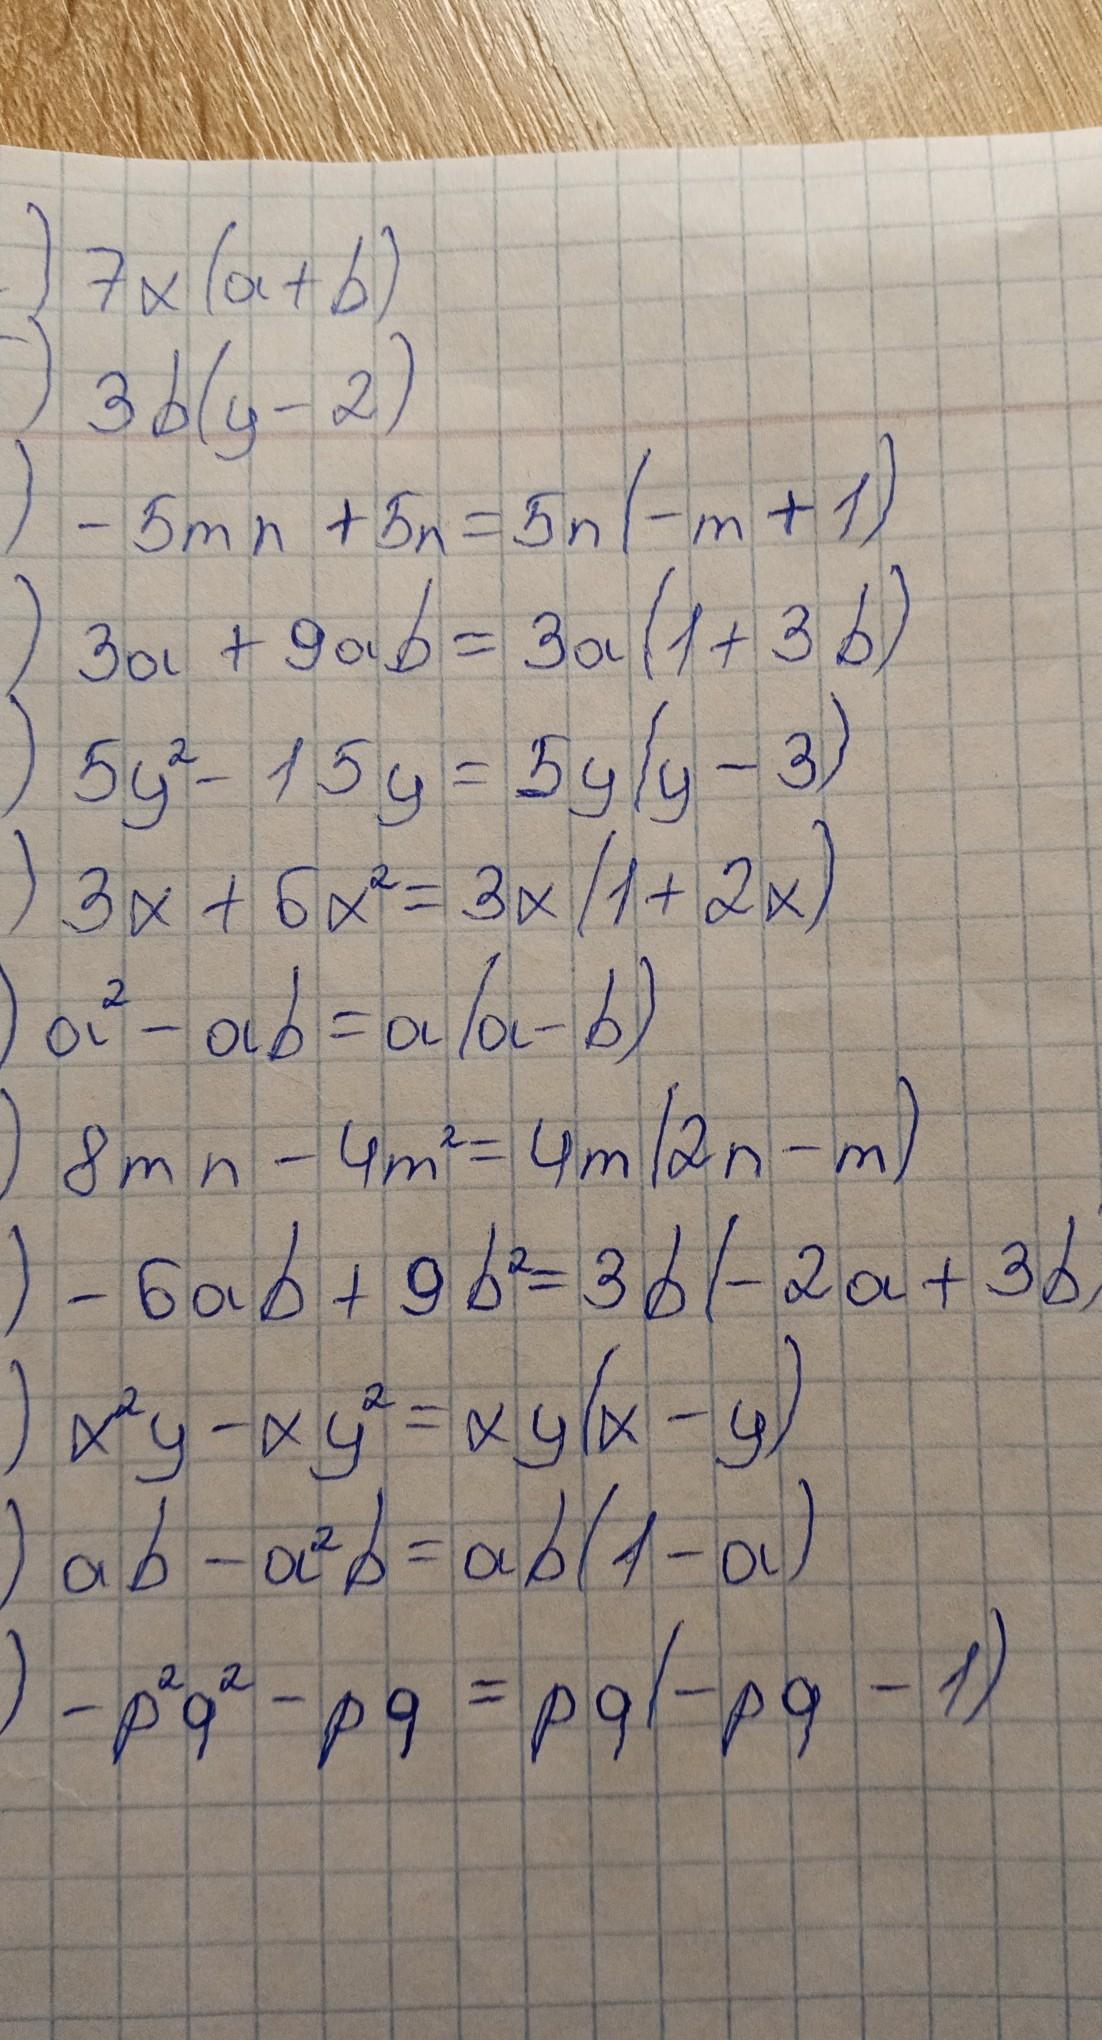 ) 7x(a+b)
) 3b(y-2)
) -5mn+5n=5n(-m+1)
) 3a+9ab=3a(1+3b)
) 5y²-15y=5y(y-3)
) 3x+6x²=3x(1+2x)
) a²-ab=a(a-b)
) 8mn-4m²=4m(2n-m)
) -6ab+9b²=3b(-2a+3b)
) x²y-xy²=xy(x-y)
) ab-a²b=ab(1-a)
) -p²q²-pq=pq(-pq-1)